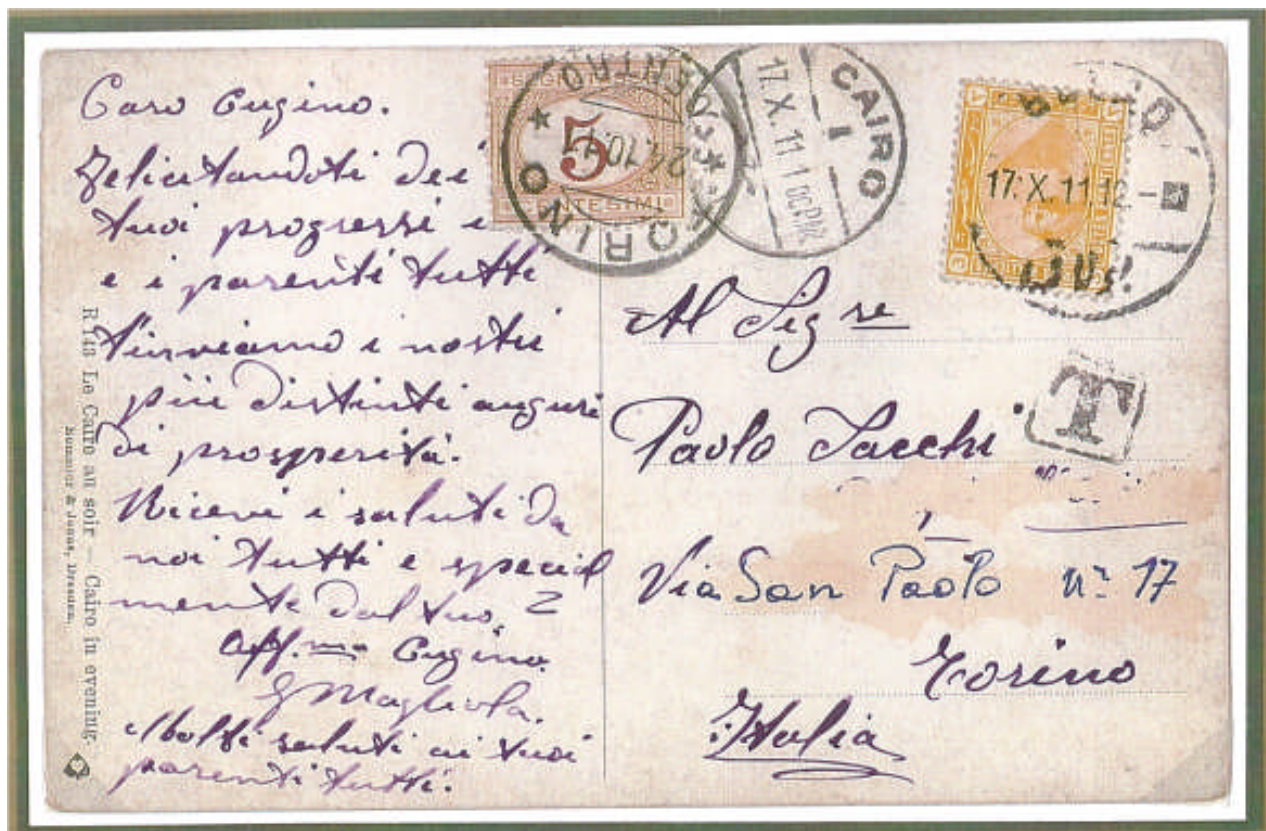 Caro Cugino.
Felicitandoti dei
tuoi progressi i
e i parenti tutti
t'inviamo i nostri
più distinti auguri
di prosperità.
Ricevi i saluti da
noi tutti e special
mente dal tuo,
Aff.mo Cugino.
G Magliola.
Molti saluti ai tuoi
parenti tutti.
R 143 Le Caire au soir — Cairo in evening.
Dresden.
SEGNATASSE
5
CENTESIMI
TORINO
CENTRO
24.10.11
CAIRO
1
17.X.11 1
17.X.11 12.-
3
T
Al Sigre
Paolo Sacchi
Via San Paolo n° 17
Torino
Italia